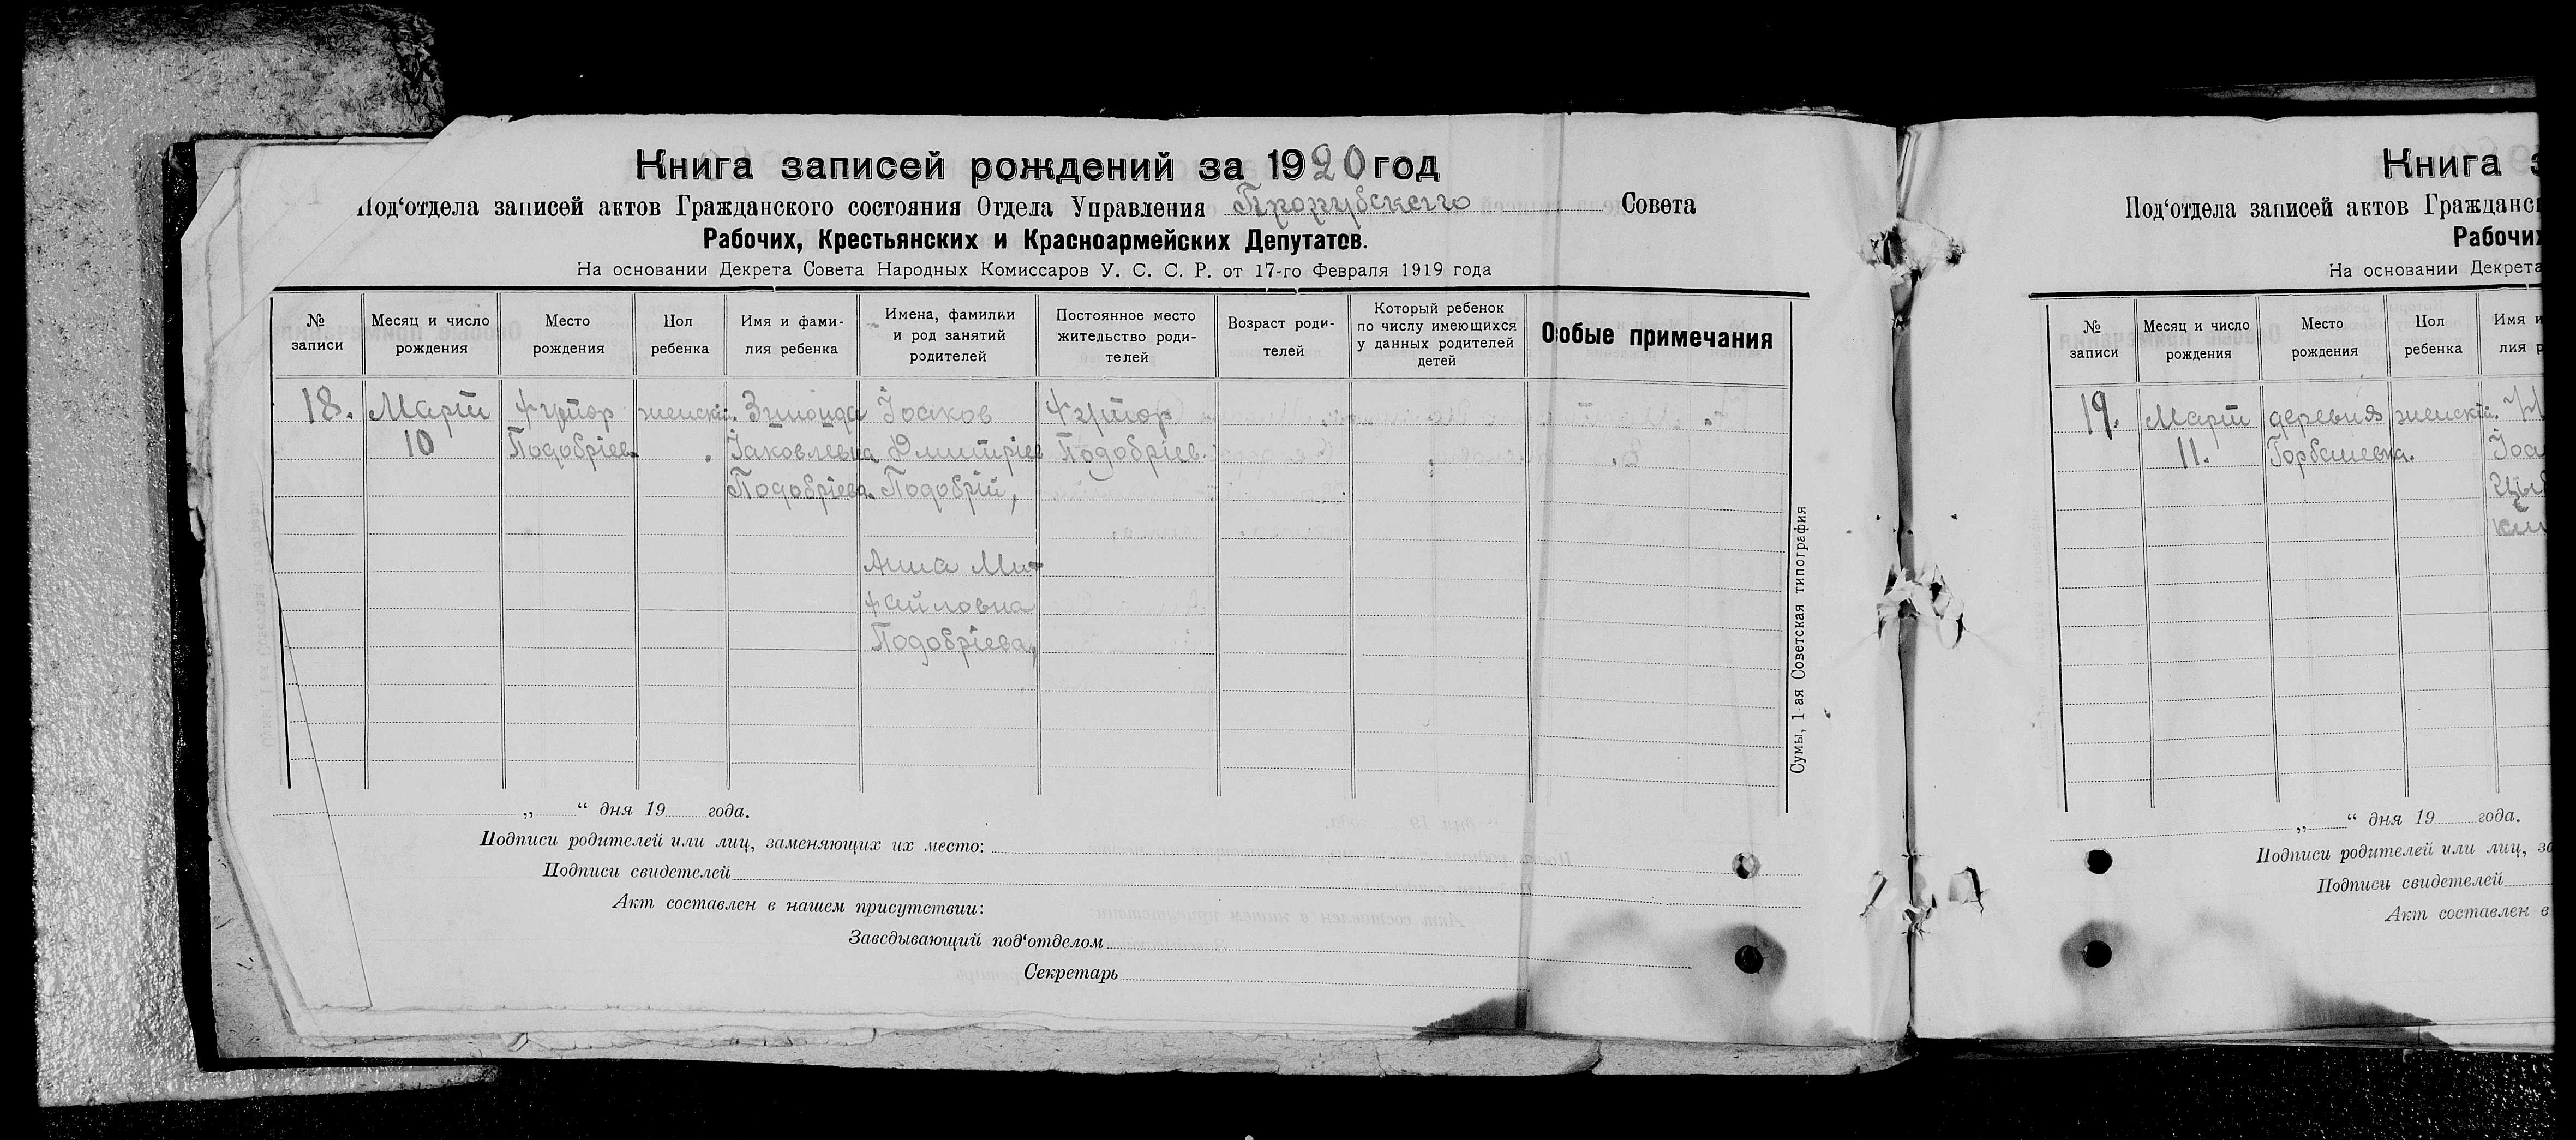 Книга записей рождений за 1920 год
Под‘отдела записей актов Гражданского состояния Отдела Управления Прорубского Совета
Рабочих, Крестьянских и Красноармейских Депутатов.
На основании Декрета Совета Народных Комиссаров У. С. С. Р. от 17-го Февраля 1919 года
№ записи
Месяц и число рождения
Место рождения
Пол ребенка
Имя и фами-
лия ребенка
Имена, фамилии
и род занятий
родителей
Постоянное место
жительство роди-
телей
Возраст роди-
телей
Который ребенок
по числу имеющихся
у данных родителей
детей
Особые примечания
18. Март Хутор женск. Зиноида Іоаков Хутор
10 Подобріев. Іаковлевна Дмитріев Подобріев.
Подобріева. Подобрій,
Анна Ми-
хайловна
Подобріева,
Сумы, 1-ая Советская типография
„ “ дня 19 года.
Подписи родителей или лиц, заменяющих их место:
Подписи свидетелей
Акт составлен в нашем присутствии:
Заведывающий под‘отделом
Секретарь
Книга з
Под‘отдела записей актов Гражданс
Рабочих
На основании Декрета
№ записи
Месяц и число рождения
Место рождения
Пол ребенка
Имя и
лия р
19. Март деревня женскій.
11. Горбашевка. Іоа
„ “ дня 19 года.
Подписи родителей или лиц, за
Подписи свидетелей
Акт составлен в